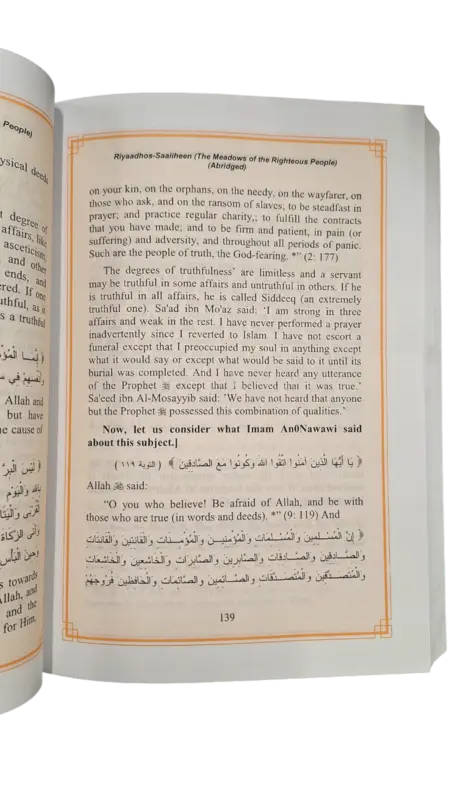 People)
ysical deeds
t degree of
affairs, like
asceticism,
and other
ends, and
red. If one
uthful, as it
s a truthful
﴿ إِنَّمَا الْمُؤْمِ
وَأَنْفُسِهِمْ فِي سَ
Allah and
but have
he cause of
﴿ لَيْسَ الْبِرَّ
بِاللَّهِ وَالْيَوْمِ
الْقُرْبَى وَالْيَتَا
وَآتَى الزَّكَاةَ
وَحِينَ الْبَأْسِ
s towards
Allah, and
and the
for Him,
Riyaadhos-Saaliheen (The Meadows of the Righteous People)
(Abridged)
on your kin, on the orphans, on the needy, on the wayfarer, on
those who ask, and on the ransom of slaves; to be steadfast in
prayer; and practice regular charity,; to fulfill the contracts
that you have made; and to be firm and patient, in pain (or
suffering) and adversity, and throughout all periods of panic.
Such are the people of truth, the God-fearing. *” (2: 177)
The degrees of truthfulness’ are limitless and a servant
may be truthful in some affairs and untruthful in others. If he
is truthful in all affairs, he is called Siddeeq (an extremely
truthful one). Sa'ad ibn Mo'az said: ‘I am strong in three
affairs and weak in the rest. I have never performed a prayer
inadvertently since I reverted to Islam. I have not escort a
funeral except that I preoccupied my soul in anything except
what it would say or except what would be said to it until its
burial was completed. And I have never heard any utterance
of the Prophet ﷺ except that I believed that it was true.’
Sa'eed ibn Al-Mosayyib said: ’We have not heard that anyone
but the Prophet ﷺ possessed this combination of qualities.’
Now, let us consider what Imam An0Nawawi said
about this subject.]
﴿ يَا أَيُّهَا الَّذِينَ آمَنُوا اتَّقُوا اللَّهَ وَكُونُوا مَعَ الصَّادِقِينَ ﴾ ( التوبة ١١٩ )
Allah ﷻ said:
“O you who believe! Be afraid of Allah, and be with
those who are true (in words and deeds). *” (9: 119) And
﴿ إِنَّ الْمُسْلِمِينَ وَالْمُسْلِمَاتِ وَالْمُؤْمِنِينَ وَالْمُؤْمِنَاتِ وَالْقَانِتِينَ وَالْقَانِتَاتِ
وَالصَّادِقِينَ وَالصَّادِقَاتِ وَالصَّابِرِينَ وَالصَّابِرَاتِ وَالْخَاشِعِينَ وَالْخَاشِعَاتِ
وَالْمُتَصَدِّقِينَ وَالْمُتَصَدِّقَاتِ وَالصَّائِمِينَ وَالصَّائِمَاتِ وَالْحَافِظِينَ فُرُوجَهُمْ
139